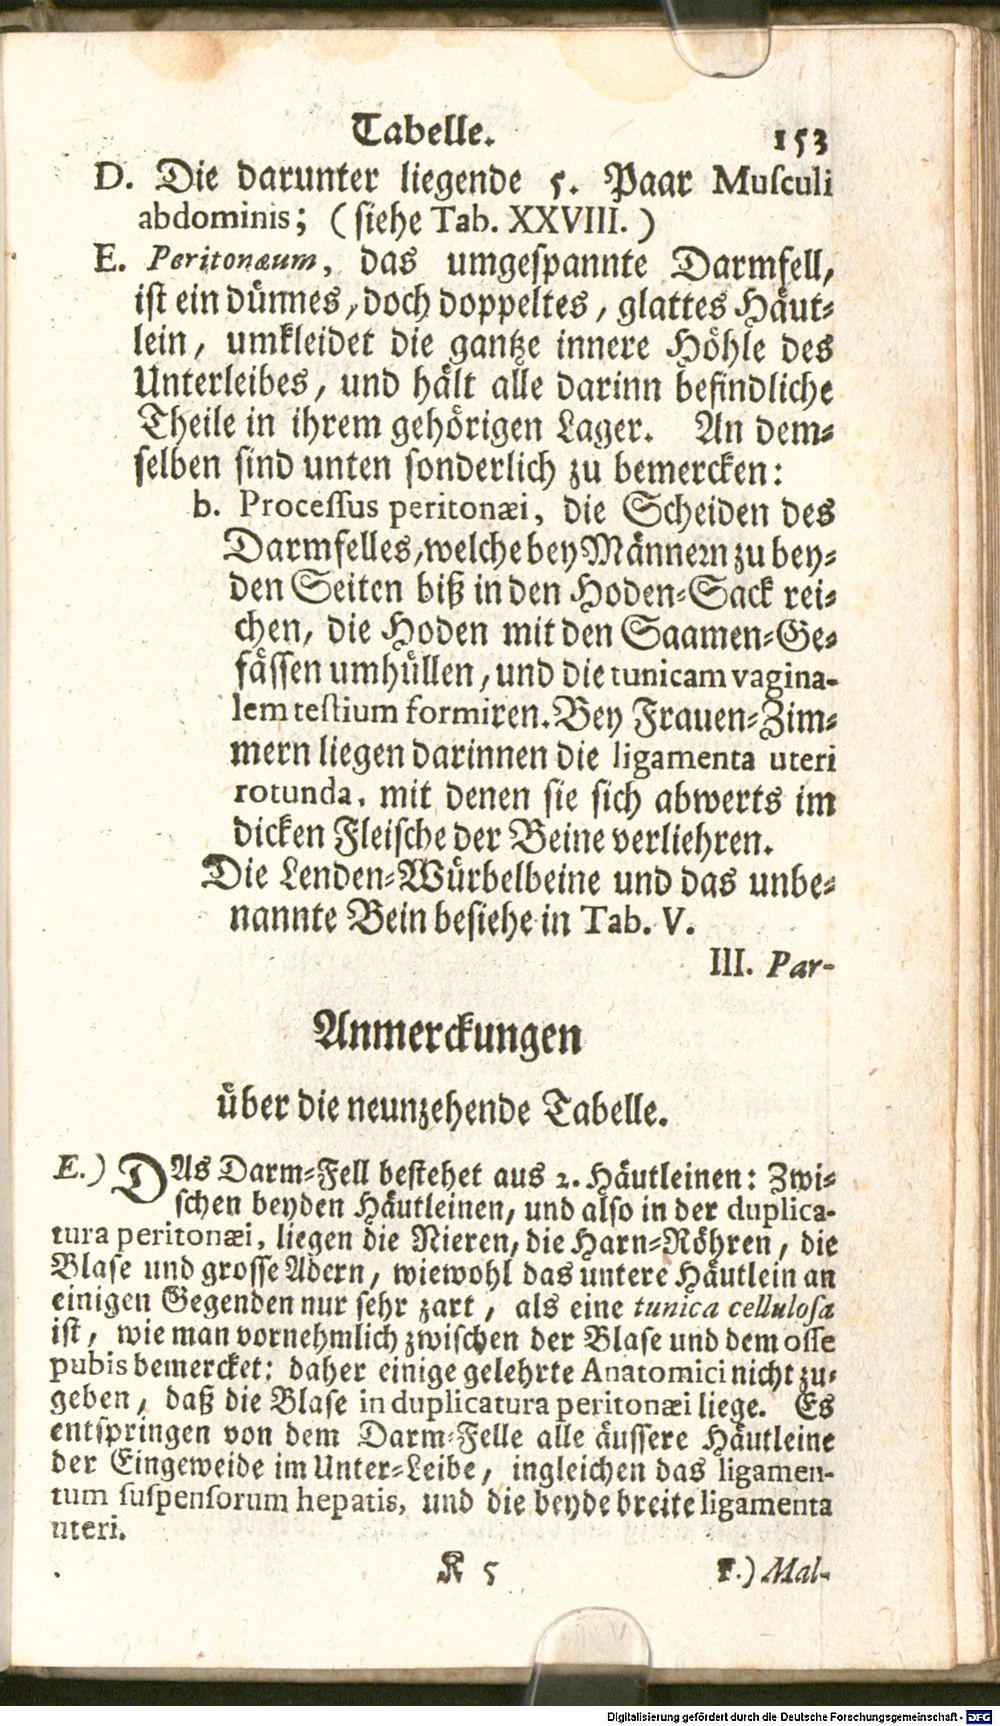 Tabelle. 153
D. Die darunter liegende 5. Paar Musculi
abdominis; (siehe Tab. XXVIII.)
E. Peritonæum, das umgespannte Darmfell,
ist ein dünnes, doch doppeltes, glattes Häut-
lein, umkleidet die gantze innere Höhle des
Unterleibes, und hält alle darinn befindliche
Theile in ihrem gehörigen Lager. An dem-
selben sind unten sonderlich zu bemercken:
b. Processus peritonæi, die Scheiden des
Darmfelles, welche bey Männern zu bey-
den Seiten biß in den Hoden-Sack rei-
chen, die Hoden mit den Saamen-Ge-
fässen umhüllen, und die tunicam vagina-
lem testium formiren. Bey Frauen-Zim-
mern liegen darinnen die ligamenta uteri
rotunda, mit denen sie sich abwerts im
dicken Fleische der Beine verliehren.
Die Lenden-Würbelbeine und das unbe-
nannte Bein besiehe in Tab. V.
III. Par-
Anmerckungen
über die neunzehende Tabelle.
E.) DAs Darm-Fell bestehet aus 2. Häutleinen: Zwi-
schen beyden Häutleinen, und also in der duplica-
tura peritonæi, liegen die Nieren, die Harn-Röhren, die
Blase und grosse Adern, wiewohl das untere Häutlein an
einigen Gegenden nur sehr zart, als eine tunica cellulosa
ist, wie man vornehmlich zwischen der Blase und dem osse
pubis bemercket: daher einige gelehrte Anatomici nicht zu-
geben, daß die Blase in duplicatura peritonæi liege. Es
entspringen von dem Darm-Felle alle äussere Häutleine
der Eingeweide im Unter-Leibe, ingleichen das ligamen-
tum suspensorum hepatis, und die beyde breite ligamenta
uteri.
K 5 F.) Mal-
Digitalisierung gefördert durch die Deutsche Forschungsgemeinschaft - DFG